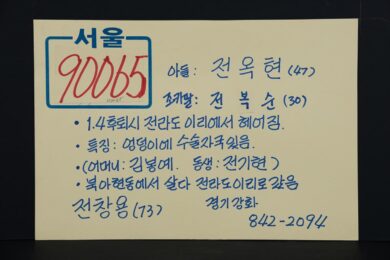 서울
90065
아들: 전옥현(47)
조카딸: 전복순(30)
• 1.4후퇴시 전라도 이리에서 헤어짐.
• 특징: 엉덩이에 수술자국있음.
• (어머니: 김녕예. 동생: 전기현)
• 북아현동에서 살다 전라도이리로갔음
전창용(73) 경기강화
842-2094